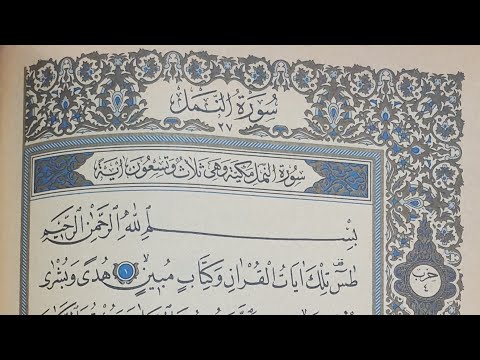 سُورَةُ النَّمْلِ
٢٧
سُورَةُ النَّمْلِ مَكِّيَّةٌ وَهِيَ ثَلَاثٌ وَتِسْعُونَ اٰيَةً
بِسْمِ اللّٰهِ الرَّحْمٰنِ الرَّحِيمِ
طٰسٓ تِلْكَ اٰيَاتُ الْقُرْاٰنِ وَكِتَابٍ مُبِينٍ ١ هُدًى وَبُشْرٰى
حزب
٤